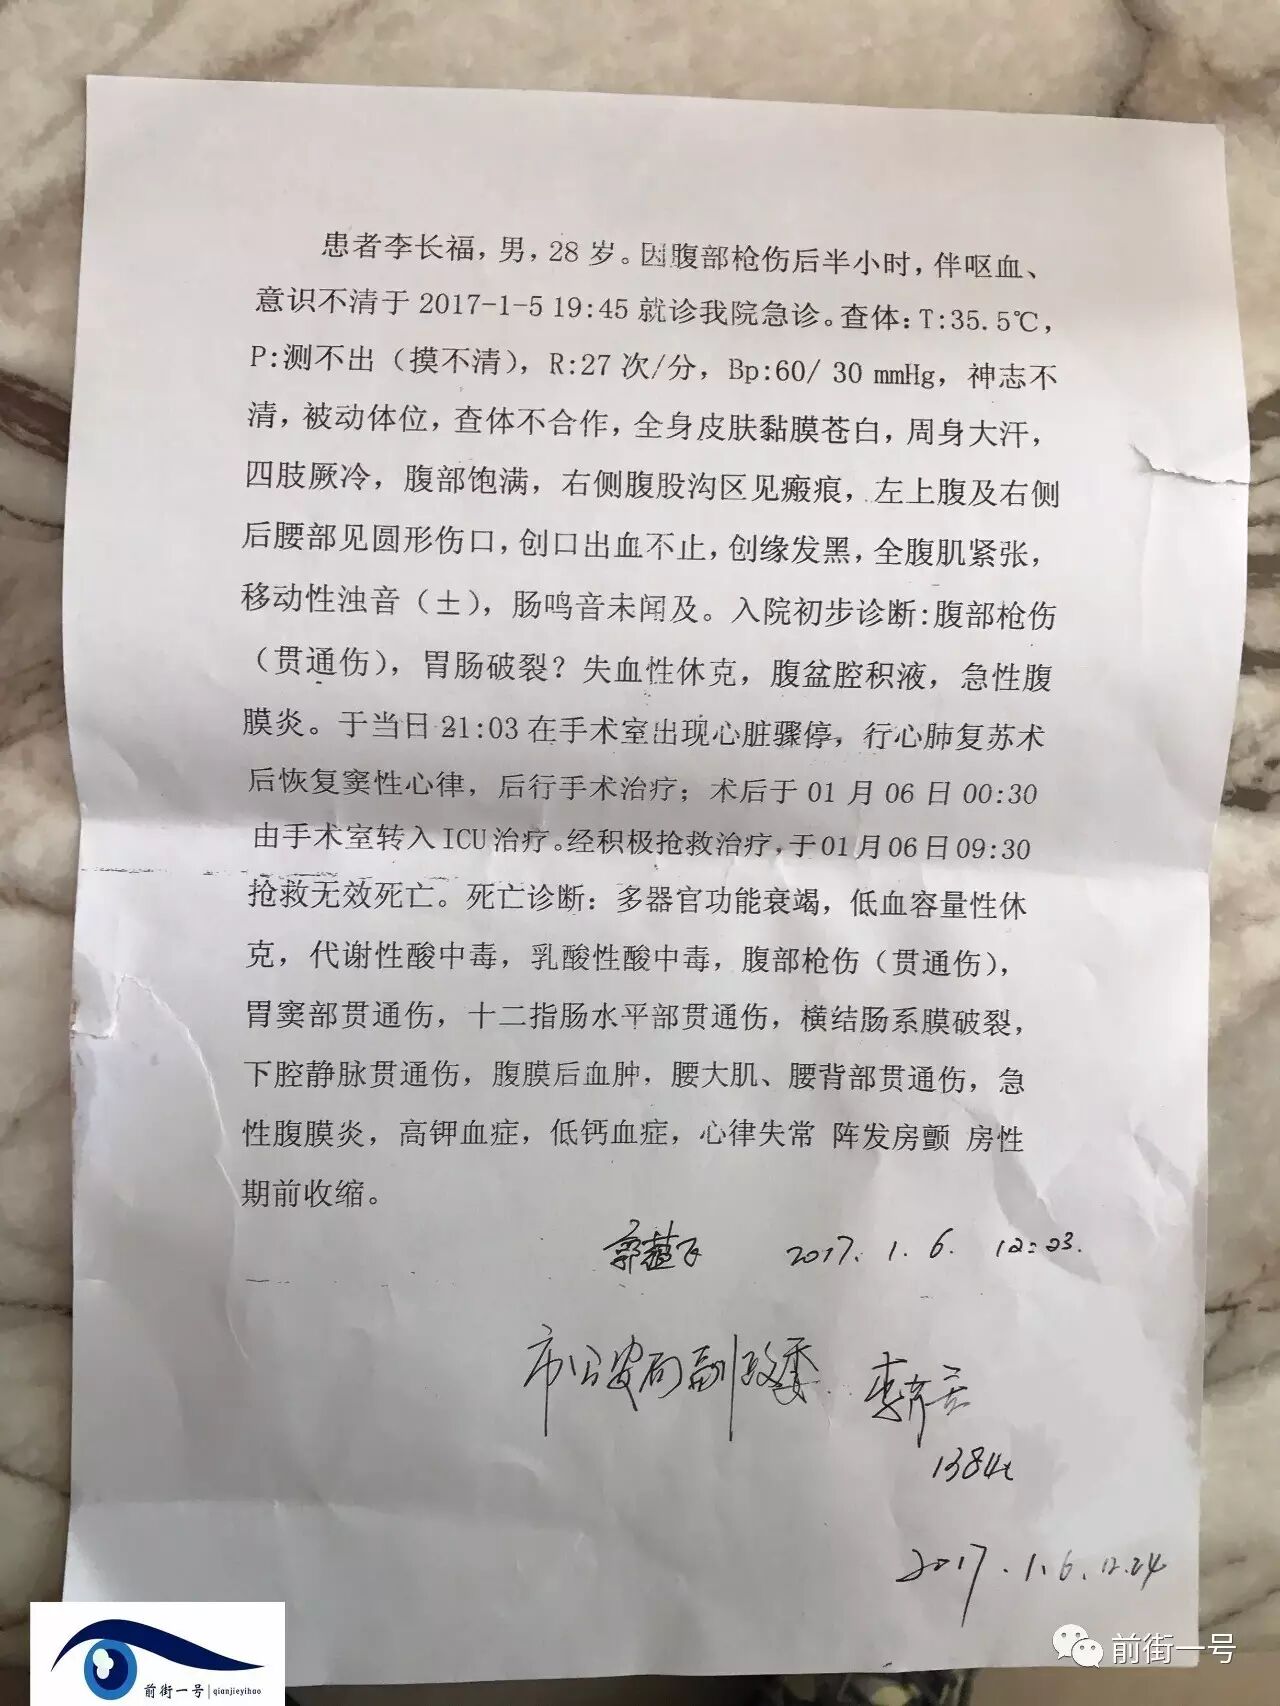 患者李长福，男，28岁。因腹部枪伤后半小时，伴呕血、
意识不清于2017-1-5 19:45就诊我院急诊。查体：T:35.5℃，
P:测不出（摸不清），R:27次/分，Bp:60/ 30 mmHg，神志不
清，被动体位，查体不合作，全身皮肤黏膜苍白，周身大汗，
四肢厥冷，腹部饱满，右侧腹股沟区见瘢痕，左上腹及右侧
后腰部见圆形伤口，创口出血不止，创缘发黑，全腹肌紧张，
移动性浊音（±），肠鸣音未闻及。入院初步诊断：腹部枪伤
（贯通伤），胃肠破裂？失血性休克，腹盆腔积液，急性腹
膜炎。于当日21:03在手术室出现心脏骤停，行心肺复苏术
后恢复窦性心律，后行手术治疗；术后于01月06日00:30
由手术室转入ICU治疗。经积极抢救治疗，于01月06日09:30
抢救无效死亡。死亡诊断：多器官功能衰竭，低血容量性休
克，代谢性酸中毒，乳酸性酸中毒，腹部枪伤（贯通伤），
胃窦部贯通伤，十二指肠水平部贯通伤，横结肠系膜破裂，
下腔静脉贯通伤，腹膜后血肿，腰大肌、腰背部贯通伤，急
性腹膜炎，高钾血症，低钙血症，心律失常 阵发房颤 房性
期前收缩。
2017.1.6. 12:23.
市公安局副政委 李
2017.1.6.12.24
前街一号
前街一号 | qianjieyihao